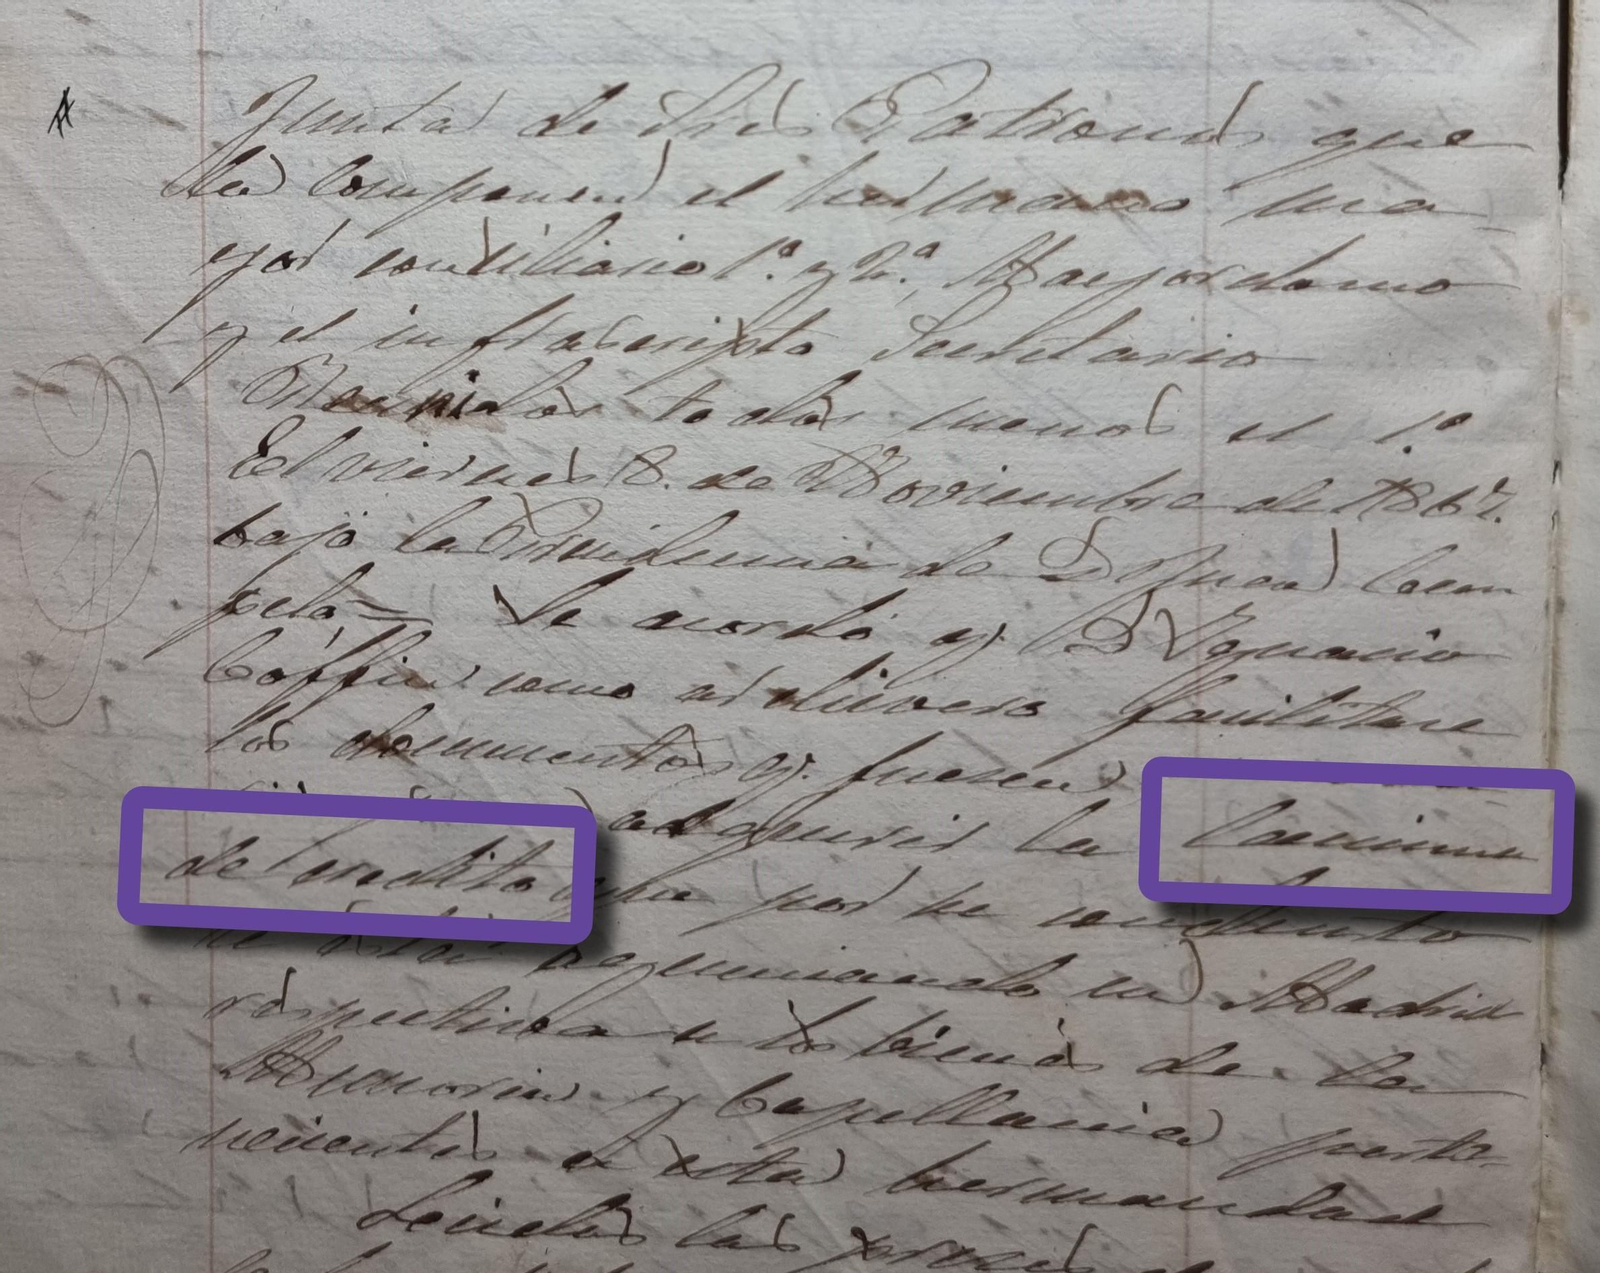 Junta de Sres Patronos que
la componen el hermano ma
yor conciliario 1.º y 2.º, Mayordomo
y el infrascripto Secretario
Reunidos todos menos el 1.º
El viernes 8. de Noviembre de 1867.
bajo la Presidencia de D Juan Cam
pelo = Se acordó q. D Ygnacio
Coffin como archivero facilitare
los documentos q. fueren
adquirir la lamina
de credito que por su conducto
se está agenciando en Madrid
respectiva a los bienes de la
Memoria y Capellania perte-
necientes a esta hermandad